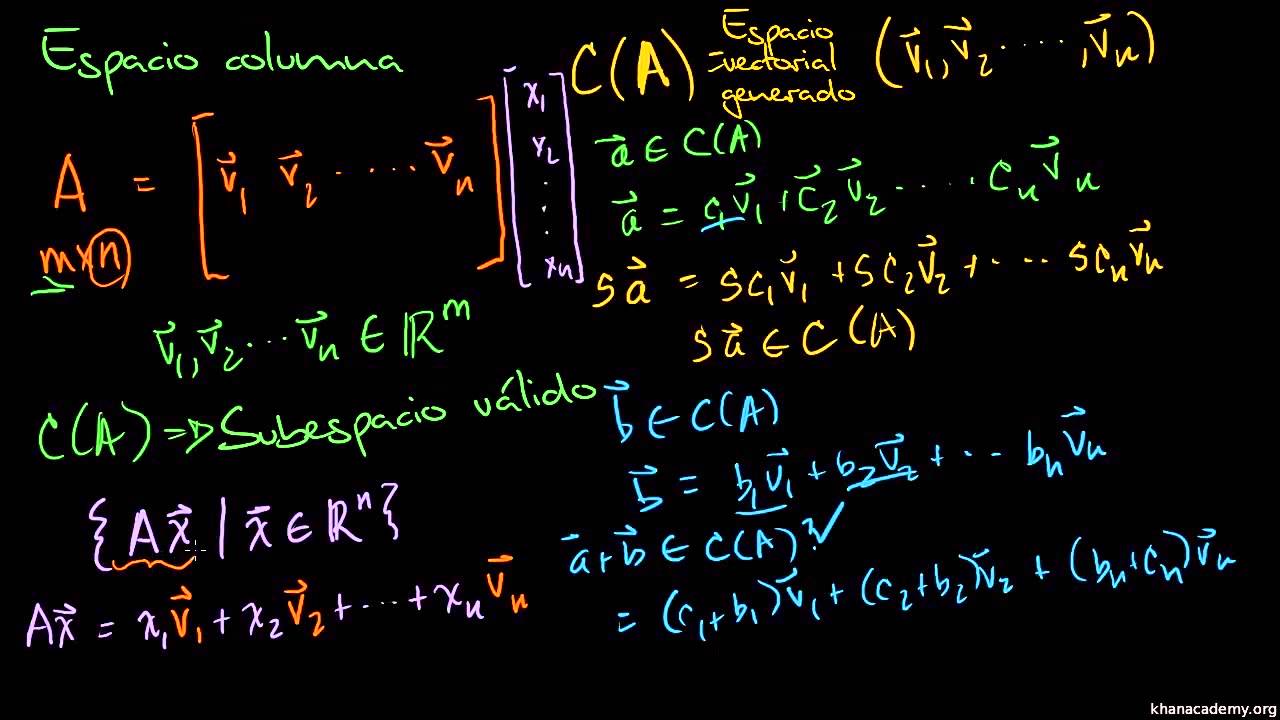 Espacio columna
A = [v⃗₁ v⃗₂ ····· v⃗ₙ] [x₁ x₂ ⋮ xₙ]
m×n
v⃗₁, v⃗₂ ··· v⃗ₙ ∈ ℝᵐ
C(A) ⇒ Subespacio válido
{Ax⃗ | x⃗ ∈ ℝⁿ}
Ax⃗ = x₁v⃗₁ + x₂v⃗₂ + ··· + xₙv⃗ₙ
C(A) Espacio vectorial generado (v⃗₁, v⃗₂ ····, v⃗ₙ)
a⃗ ∈ C(A)
a⃗ = c₁v⃗₁ + c⃗₂v⃗₂ ····· cₙv⃗ₙ
sa⃗ = sc₁v⃗₁ + sc₂v⃗₂ + ··· scₙv⃗ₙ
sa⃗ ∈ C(A)
b⃗ ∈ C(A)
b⃗ = b₁v⃗₁ + b₂v⃗₂ + ··· bₙv⃗ₙ
a⃗ + b⃗ ∈ C(A)? ✓
= (c₁+b₁)v⃗₁ + (c₂+b₂)v⃗₂ + (bₙ+cₙ)v⃗ₙ
khanacademy.org